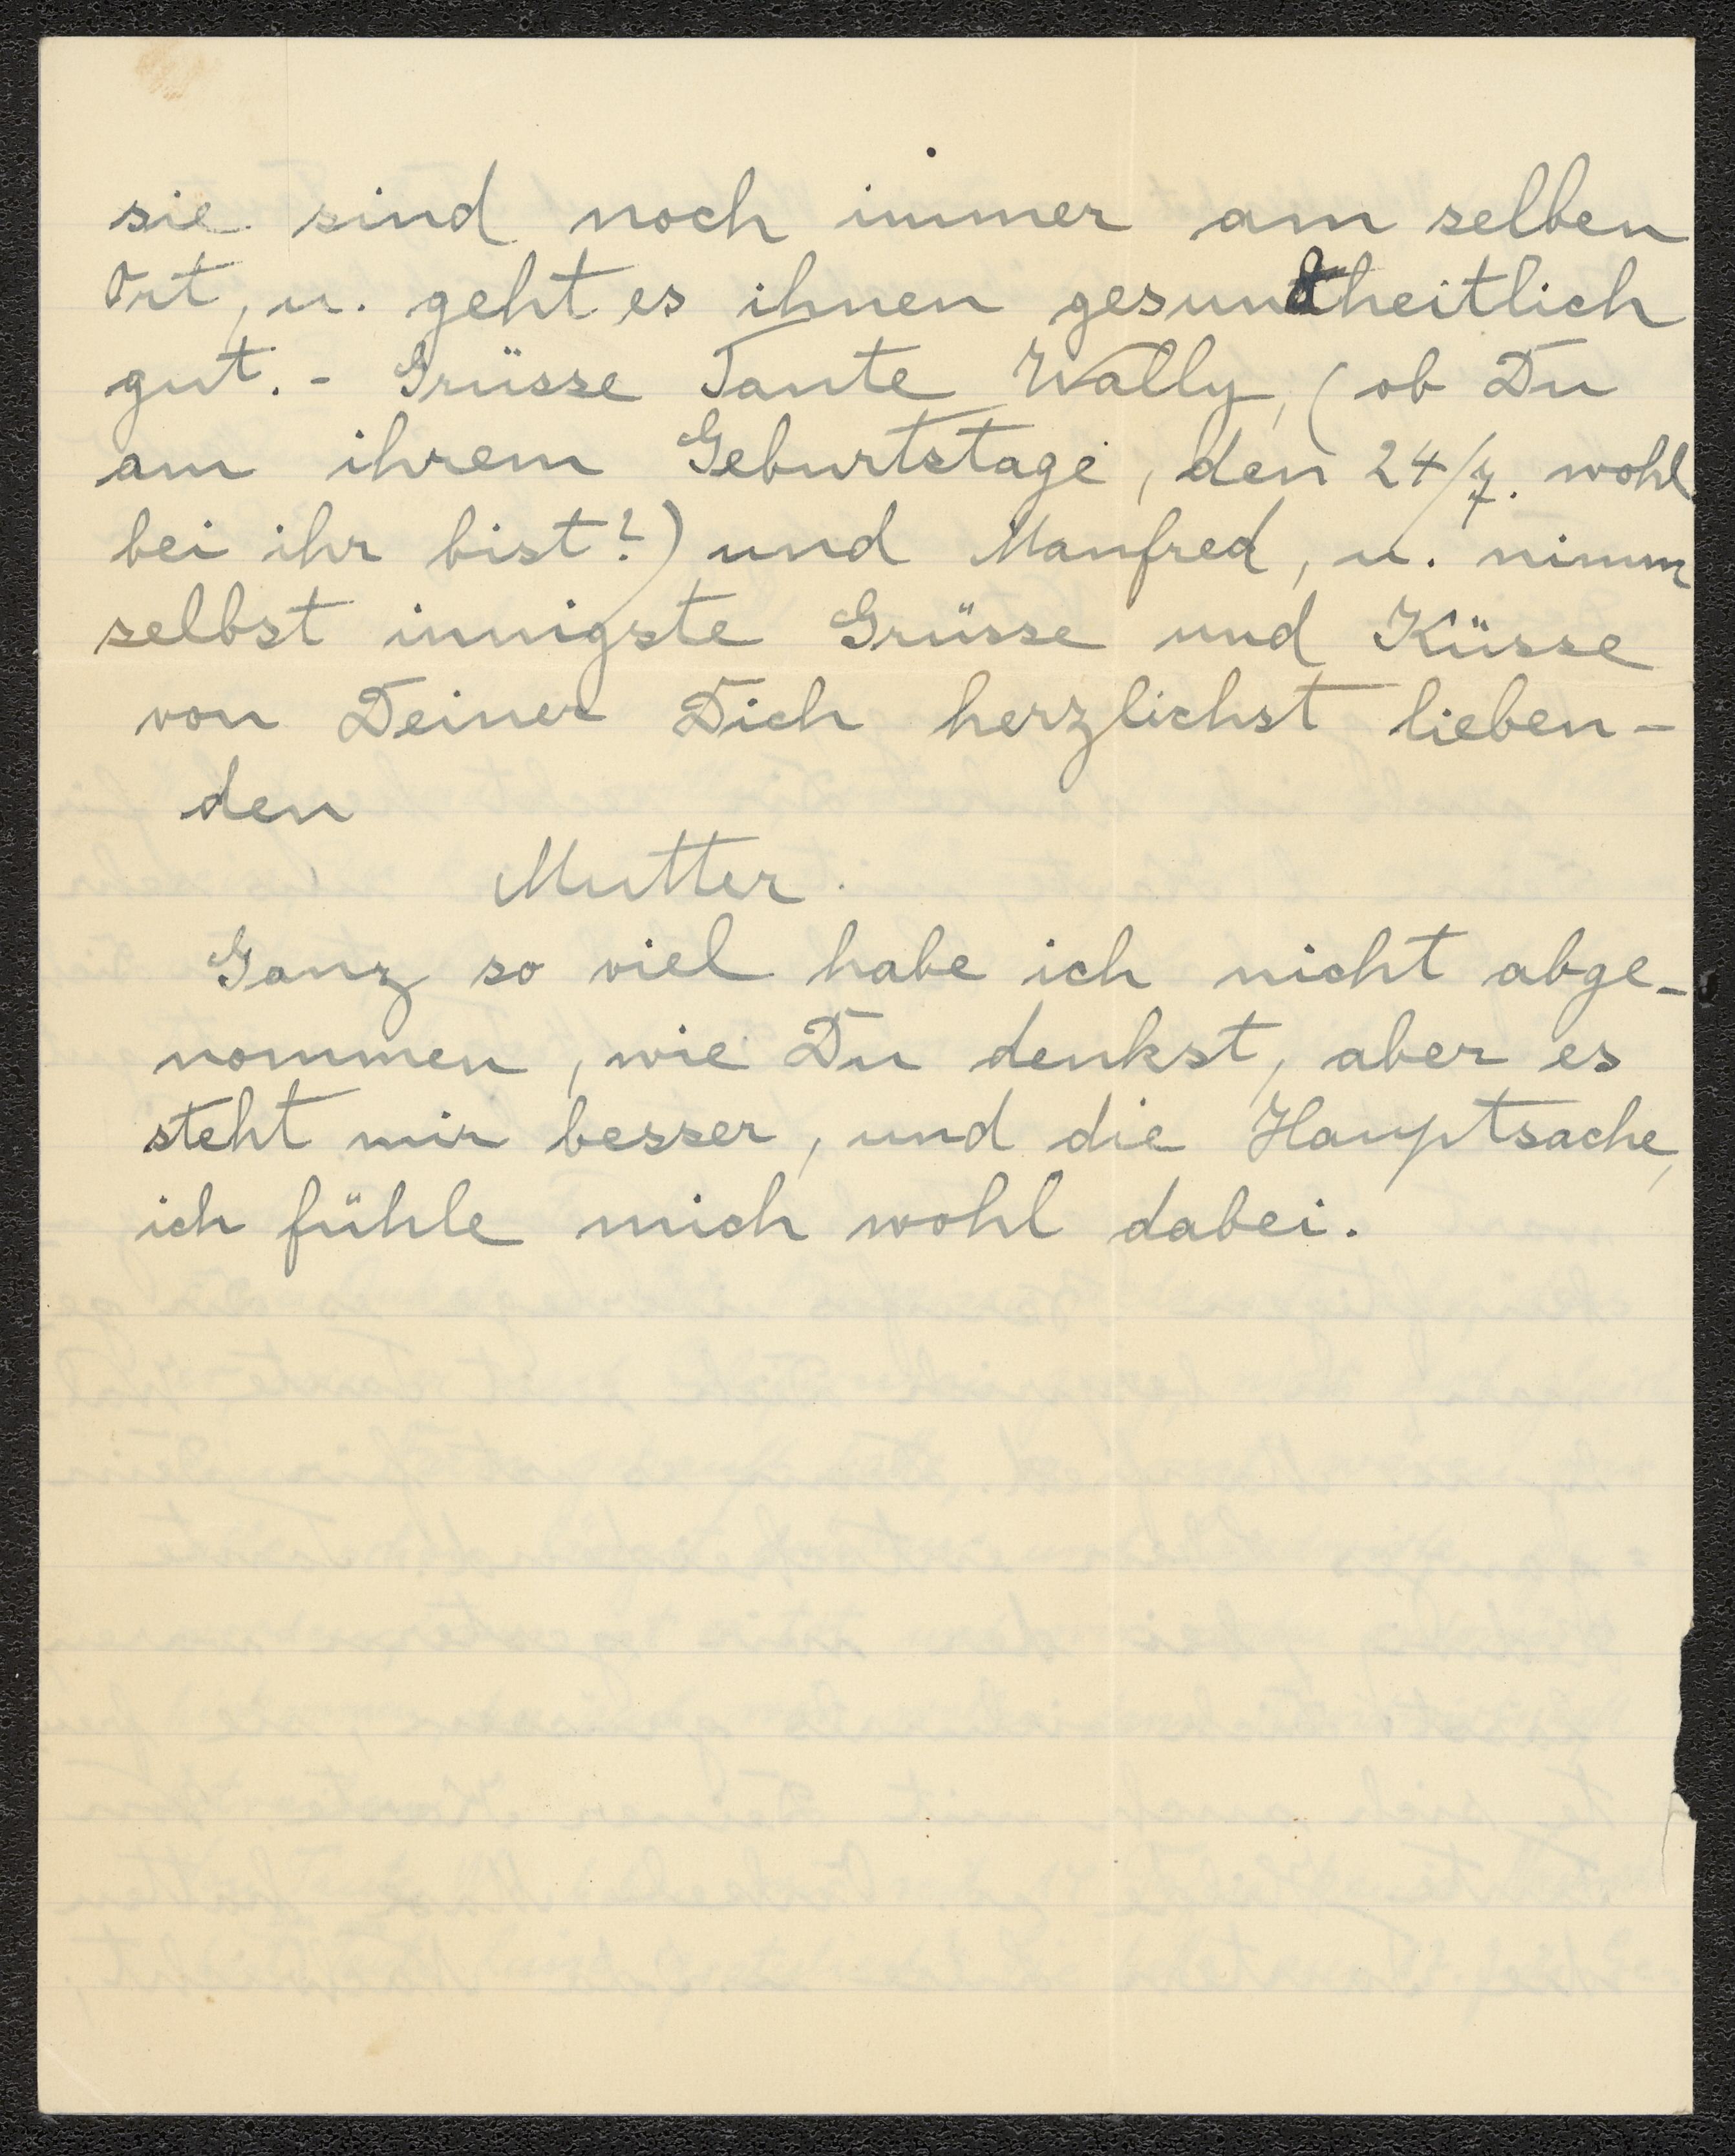 sie sind noch immer am selben
Ort, u. geht es ihnen gesundheitlich
gut. - Grüsse Tante Wally, (ob Du
am ihrem Geburtstage, den 24/7. wohl
bei ihr bist?) und Manfred, u. nimm
selbst innigste Grüsse und Küsse
von Deiner Dich herzlichst lieben-
den
Mutter.
Ganz so viel habe ich nicht abge-
nommen, wie Du denkst, aber es
steht mir besser, und die Hauptsache,
ich fühle mich wohl dabei.